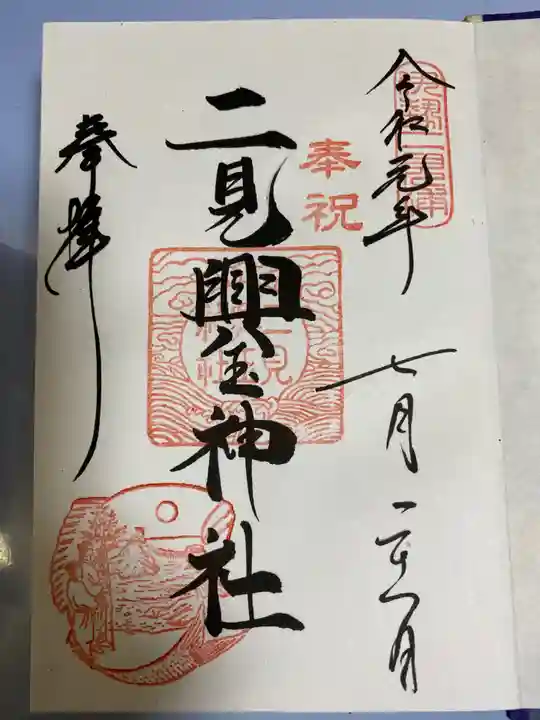 令和元年七月二十八日
奉祝
二見興玉神社
奉拝
二見